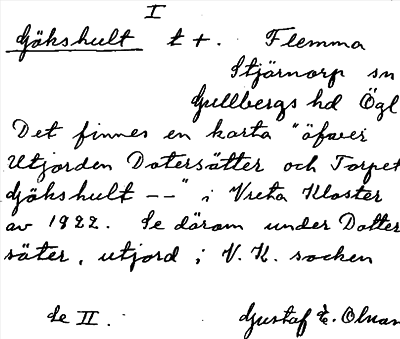 I
Gökshult t +. Flemma
Stjärnorp sn
Gullbergs hd Ögl
Det finnes en karta "öfver
Utjorden Dotersätter och Torpet
Gökshult -- " i Vreta Kloster
av 1822. Se därom under Dotter
säter, utjord i V. K. socken
Se II. Gustaf E. Olsson